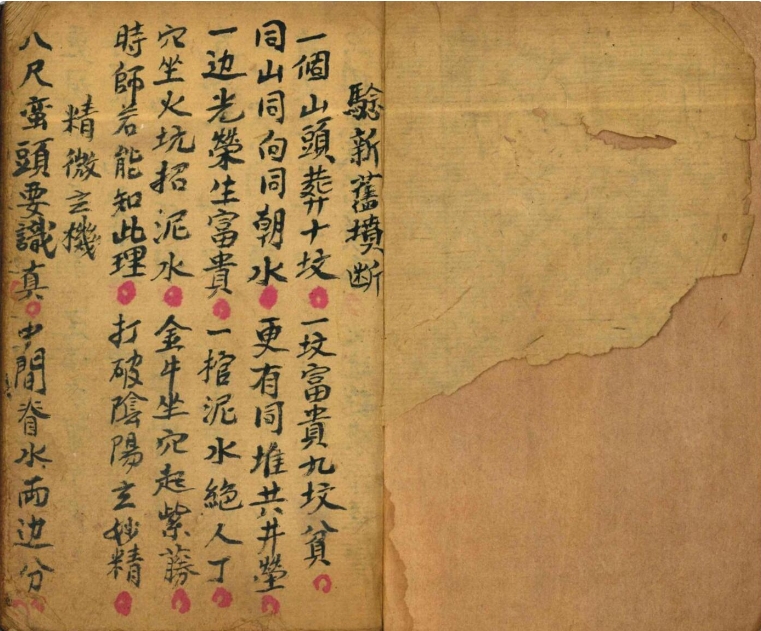 騐新舊墳断
一個山頭葬十坟 一坟富貴九坟貧
同山同向同朝水 更有同堆共井塋
一边光榮生富貴 一棺泥水絶人丁
穴坐火坑招泥水 金牛坐穴起紫藤
時師若能知此理 打破陰陽玄妙精
精微玄機
八尺蛮頭要識真 中間脊水両边分